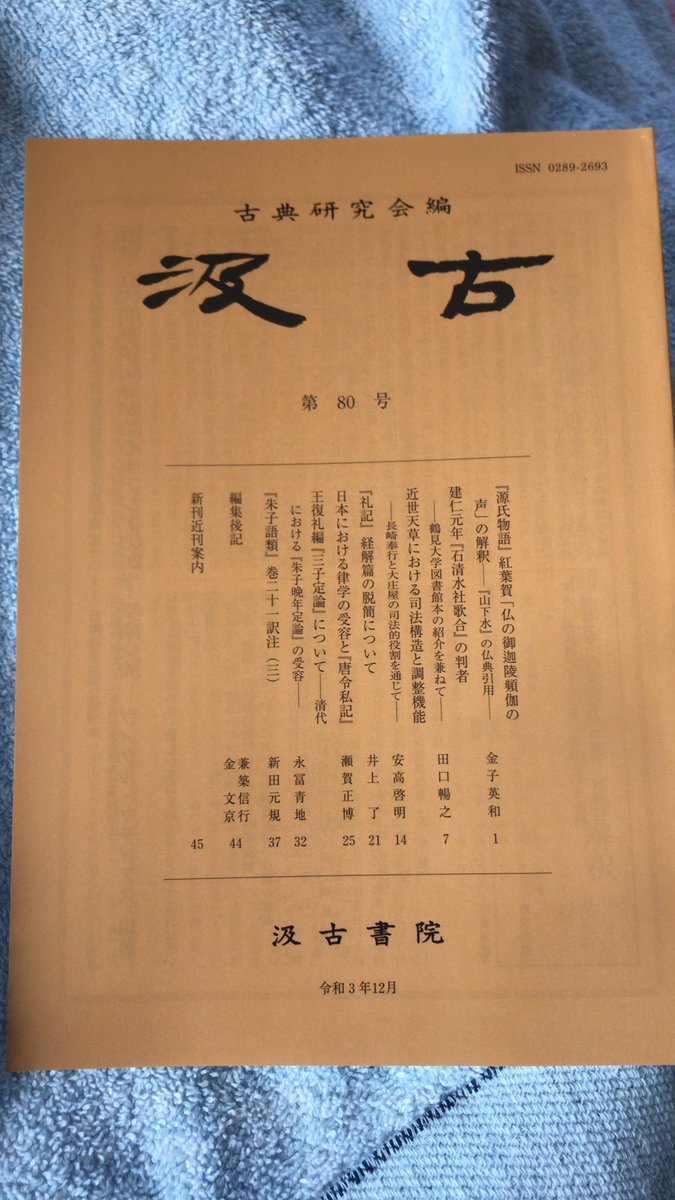 ISSN 0289-2693
古典研究会編
汲古
第 80 号
『源氏物語』紅葉賀「仏の御迦陵頻伽の
声」の解釈――『山下水』の仏典引用――
金子英和
1
建仁元年『石清水社歌合』の判者
――鶴見大学図書館本の紹介を兼ねて――
田口暢之
7
近世天草における司法構造と調整機能
――長崎奉行と大庄屋の司法的役割を通じて――
安高啓明
14
『礼記』経解篇の脱簡について
井上了
21
日本における律学の受容と『唐令私記』
瀬賀正博
25
王復礼編『三子定論』について――清代
における『朱子晩年定論』の受容――
永冨青地
32
『朱子語類』巻二十一訳注（三）
新田元規
37
編集後記
兼築信行
金文京
44
新刊近刊案内
45
汲古書院
令和3年12月